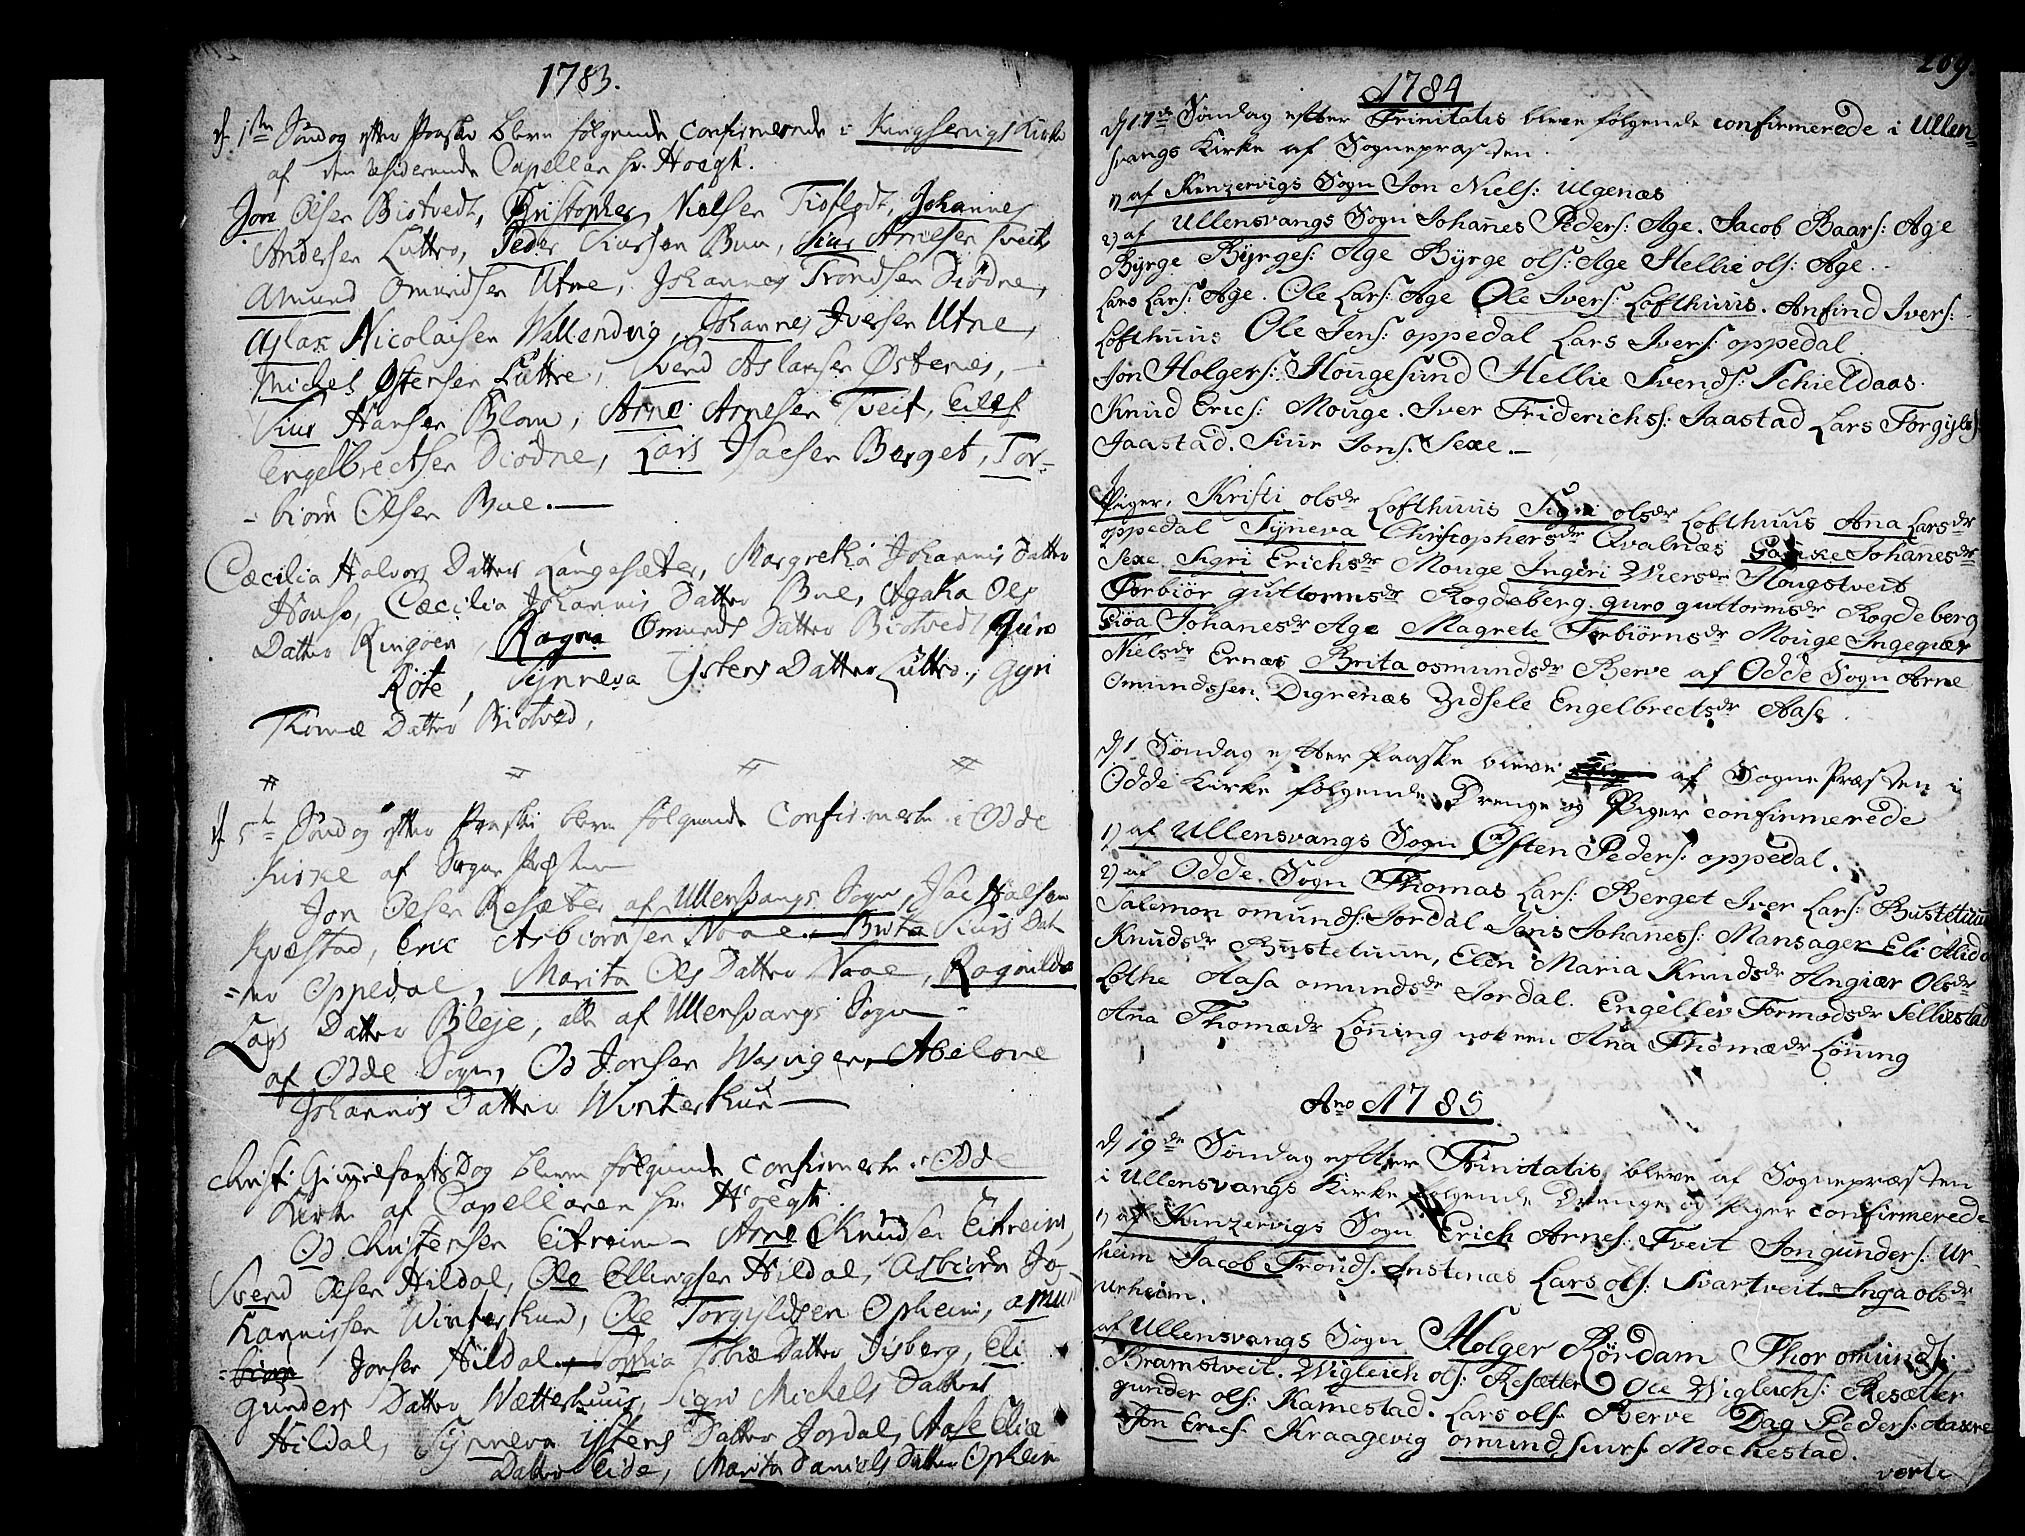 1783.
d. 1ste Søndag efter Paaske bleve følgende confirmerede i Kingservigs Kirke
af den residerende Capellan hr. Hoegh.
Jon Olsen Biotvedt, Christopher Nielsen Tioflodt, Johannes
Andersen Luttro, Peder Siursen Buu, Siur Arnesen Tveit,
Amund Omundsen Utne, Johannes Trondsen Diödne,
Aslak Nicolaisen Wallendvig, Johannes Iversen Utne,
Michel Östensen Luttre, Svend Aslaksen Østenes,
Siur Hansen Blom, Arne Arnesen Tveit, Eilef
Engelbrectsen Diödne, Lars Isacsen Berget, Tor-
-biörn Olsen Bue.
Cæcilia Halvors Datter Langesæter, Margretha Johannis Datter
Houso, Cæcilia Johannis Datter Bue, Agatha Ols
Datter Ringöen, Ragna Omunds Datter Biotved, Guro
Röte, Synneva Ystens Datter Luttro, Gyri
Thomæ Datter Biotved,
d. 5te Søndag efter Paaske bleve følgende Confirmerte i Odde
Kirke af Sogne Præsten
Jon Olsen Resæter af Ullensvangs Sogn, Isac
Kvæstad, Eric Asbiörnsen Naae. Brita Siurs Dat-
-ter Oppedal, Marita Ols Datter Naae, Ragnilda
Lars Datter Bleje, alle af Ullensvangs Sogn
af Odde Sogn, Od Jonsen Wasvigen, Abelone
Johannis Datter Winterthun
Christi Himmelfarts Dag bleve følgende confirmerte i Odde
Kirke af Capellanen hr. Hoegh.
Od Christensen Eitreim Arne Knudsen Eitreim,
Svend Olsen Hildal, Ole Ellingsen Hildal, Asbiörn Jo-
hannissen Winterthun, Ole Torgyldsen Opheim, Amun
Jonsen Hildal, Sophia Tobiæ Datter Isberg, Eli
Gunders Datter Wætterhuus, Sigri Michels Datter
Hildal, Synneva Ystens Datter Jordal, Aase Eliæ
Datter Eide, Marita Daniels Datter Opheim
209.
1784
d. 17de Søndag efter Trinitatis bleve følgende confirmerede i Ullen-
svangs Kirke af Sognepræsten.
1) af Kinzervigs Sogn Jon Niels: Ulgenæs
2) af Ullensvangs Sogn Johanes Peders: Age. Jacob Baars: Age
Byrge Byrges: Age Byrge ols: Age Hellie ols: Age.
Lars Lars: Age. Ole Lars: Age Ole Ivers: Lofthuus. Anfind Ivers:
Lofthuus Ole Jens: oppedal Lars Ivers: oppedal
Jon Holgers: Hougesund Hellie Svends: Schieldaas.
Knud Erics: Mouge. Iver Friderichs: Jaastad Lars Torgyls:
Jaastad. Siur Jons: Sexe.
Piger, Kristi olsdr Lofthuus Sigri olsdr Lofthuus Ana Larsdr
oppedal Syneva Christophersdr Qvalnæs Johanesdr
Sexe. Sigri Erichsdr Mouge Ingeri Wiersdr Hougstveit
Torbiör guttormsdr Rogdeberg. guro guttormsdr Rogdeberg
Giöa Johanesdr Age Magrete Torbiörnsdr Mouge Ingegiær
Nielsdr Ernæs Brita osmundsdr Berve af Odde Sogn Arne
Omundssen Digrenæs Zidsele Engelbrectsdr Aase.
d. 1 Søndag efter Paaske bleve af Sogne Præsten i
Odde Kirke følgende Drenge og Piger confirmerede
1) af Ullensvangs Sogn Østen Peders: oppedal.
2) af Odde Sogn Thomas Lars: Berget Iver Lars: Bustetuun
Salemon omunds: Jordal Joris Johanes: Mansager Eli Alida
Knudsdr Bustetuun, Elen Maria Knudsdr Angiær Olsdr
Lothe Aasa omundsdr Jordal. Engellev Tormodsdr Selliestad
Ana Thomædr Löning noch en Ana Thomædr Löning
Ano 1785.
d. 19de Søndag efter Trinitatis bleve af Sognepræsten
i Ullensvangs Kirke følgende Drenge og Piger confirmerede
1) af Kinzervigs Sogn Erich Arnes: Tveit Jon gunders: Ur-
heim Jacob Tronds: Instenæs Lars ols: Svartveit. Inga olsdr
Urheim.
af Ullensvangs Sogn Holger Rördam Thor omunds:
Bramstveit. Wigleich ols: Resætter Ole Wigleichs: Resætter
gunder ols: Kamestad. Lars ols: Berve Dag Peders: Aaxre
Jon Erics: Kraagevig omund siurs: Mockestad.
verte